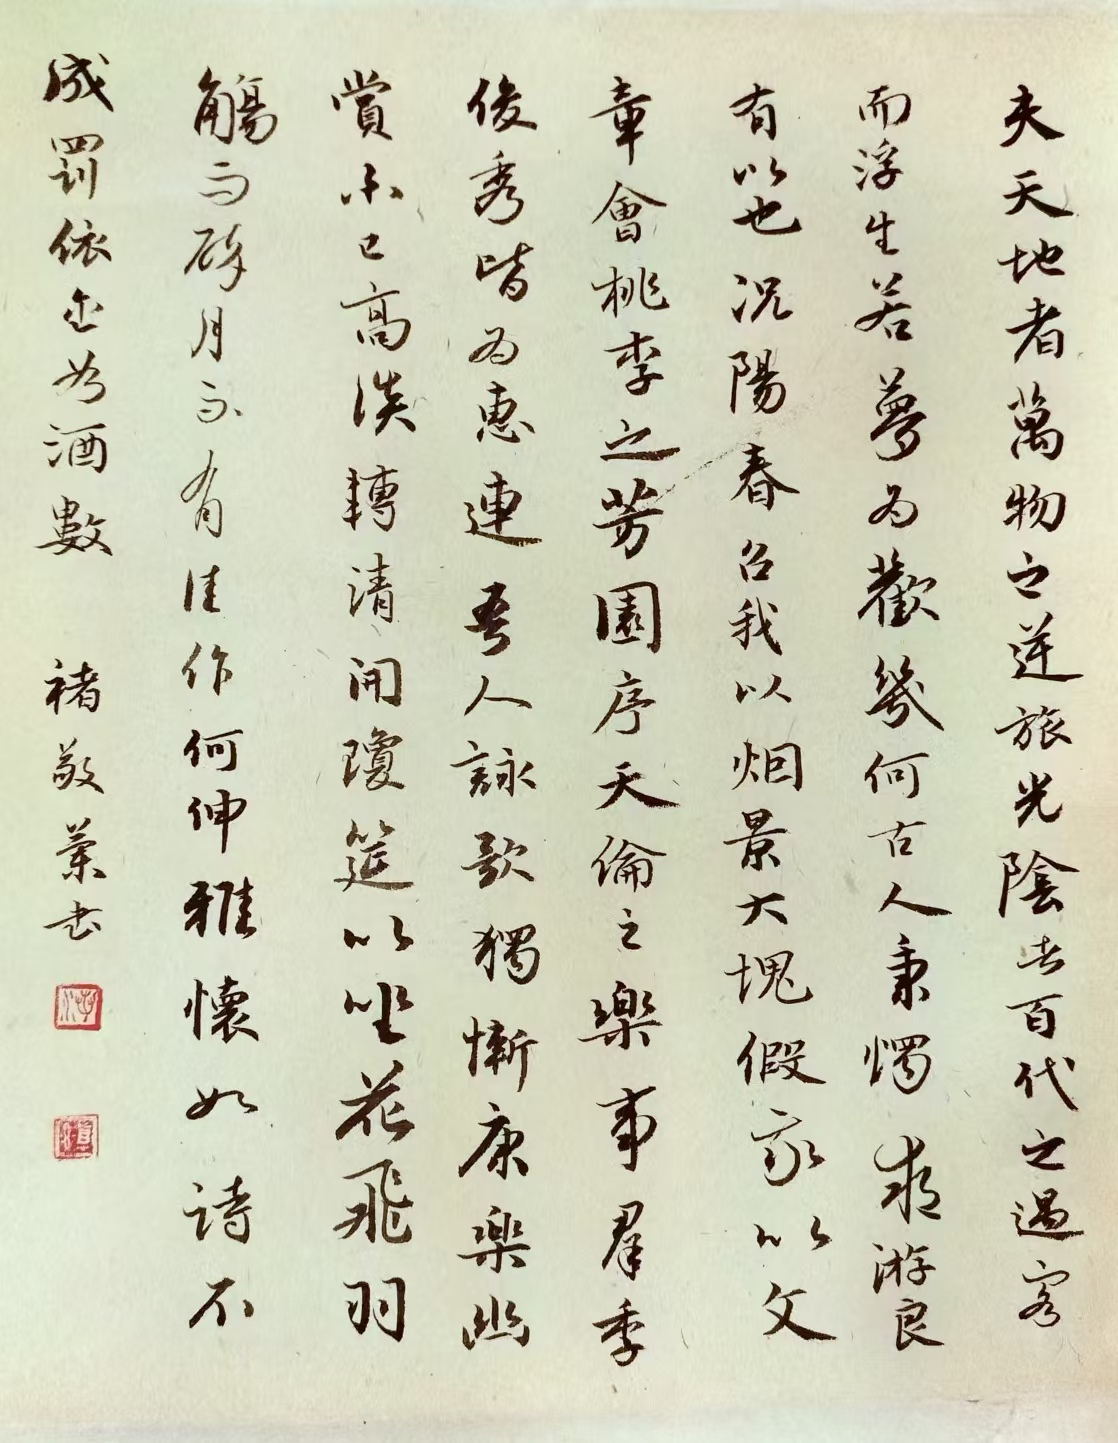 夫天地者萬物之逆旅光陰者百代之過客
而浮生若夢為歡幾何古人秉燭夜游良
有以也況陽春召我以烟景大塊假我以文
章會桃李之芳園序天倫之樂事羣季
俊秀皆為惠連吾人詠歌獨慚康樂幽
賞未已高談轉清開瓊筵以坐花飛羽
觴而醉月不有佳作何伸雅懷如詩不
成罰依金谷酒數 褚敬書